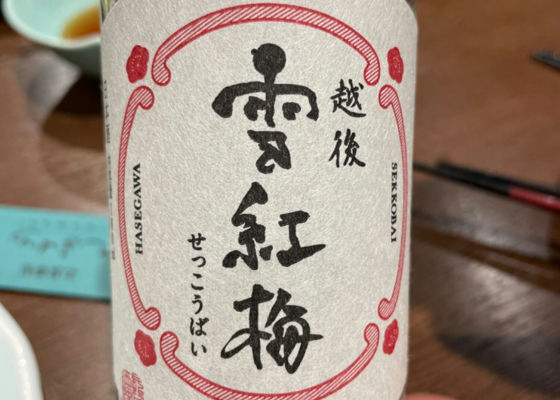 越後
雪紅梅
せっこうばい
HASEGAWA
SEKKOBAI